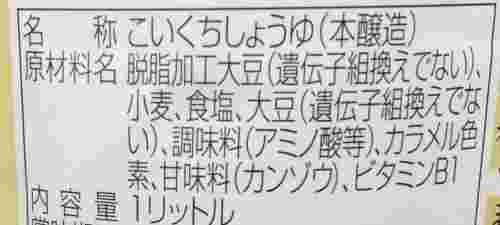 名称 こいくちしょうゆ(本醸造)
原材料名 脱脂加工大豆(遺伝子組換えでない)、
小麦、食塩、大豆(遺伝子組換えでな
い)、調味料(アミノ酸等)、カラメル色
素、甘味料(カンゾウ)、ビタミンB1
内容量 1リットル